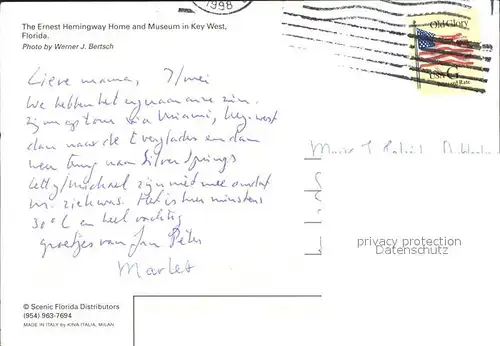 1998
The Ernest Hemingway Home and Museum in Key West,
Florida.
Photo by Werner J. Bertsch
Old Glory
USA G
Lieve mama, 7/mei
We hebben het erg naar onze zin.
Zijn op tour via Miami, Key-west
dan naar de Everglades en dan
weer terug naar Silver Springs
Letty/Michael zijn niet mee omdat
M. ziek was. Het is hier minstens
30°C en heel vochtig
groetjes van Jan Peter
Marlet
privacy protection
Datenschutz
© Scenic Florida Distributors
(954) 963-7694
MADE IN ITALY by KINA ITALIA, MILAN